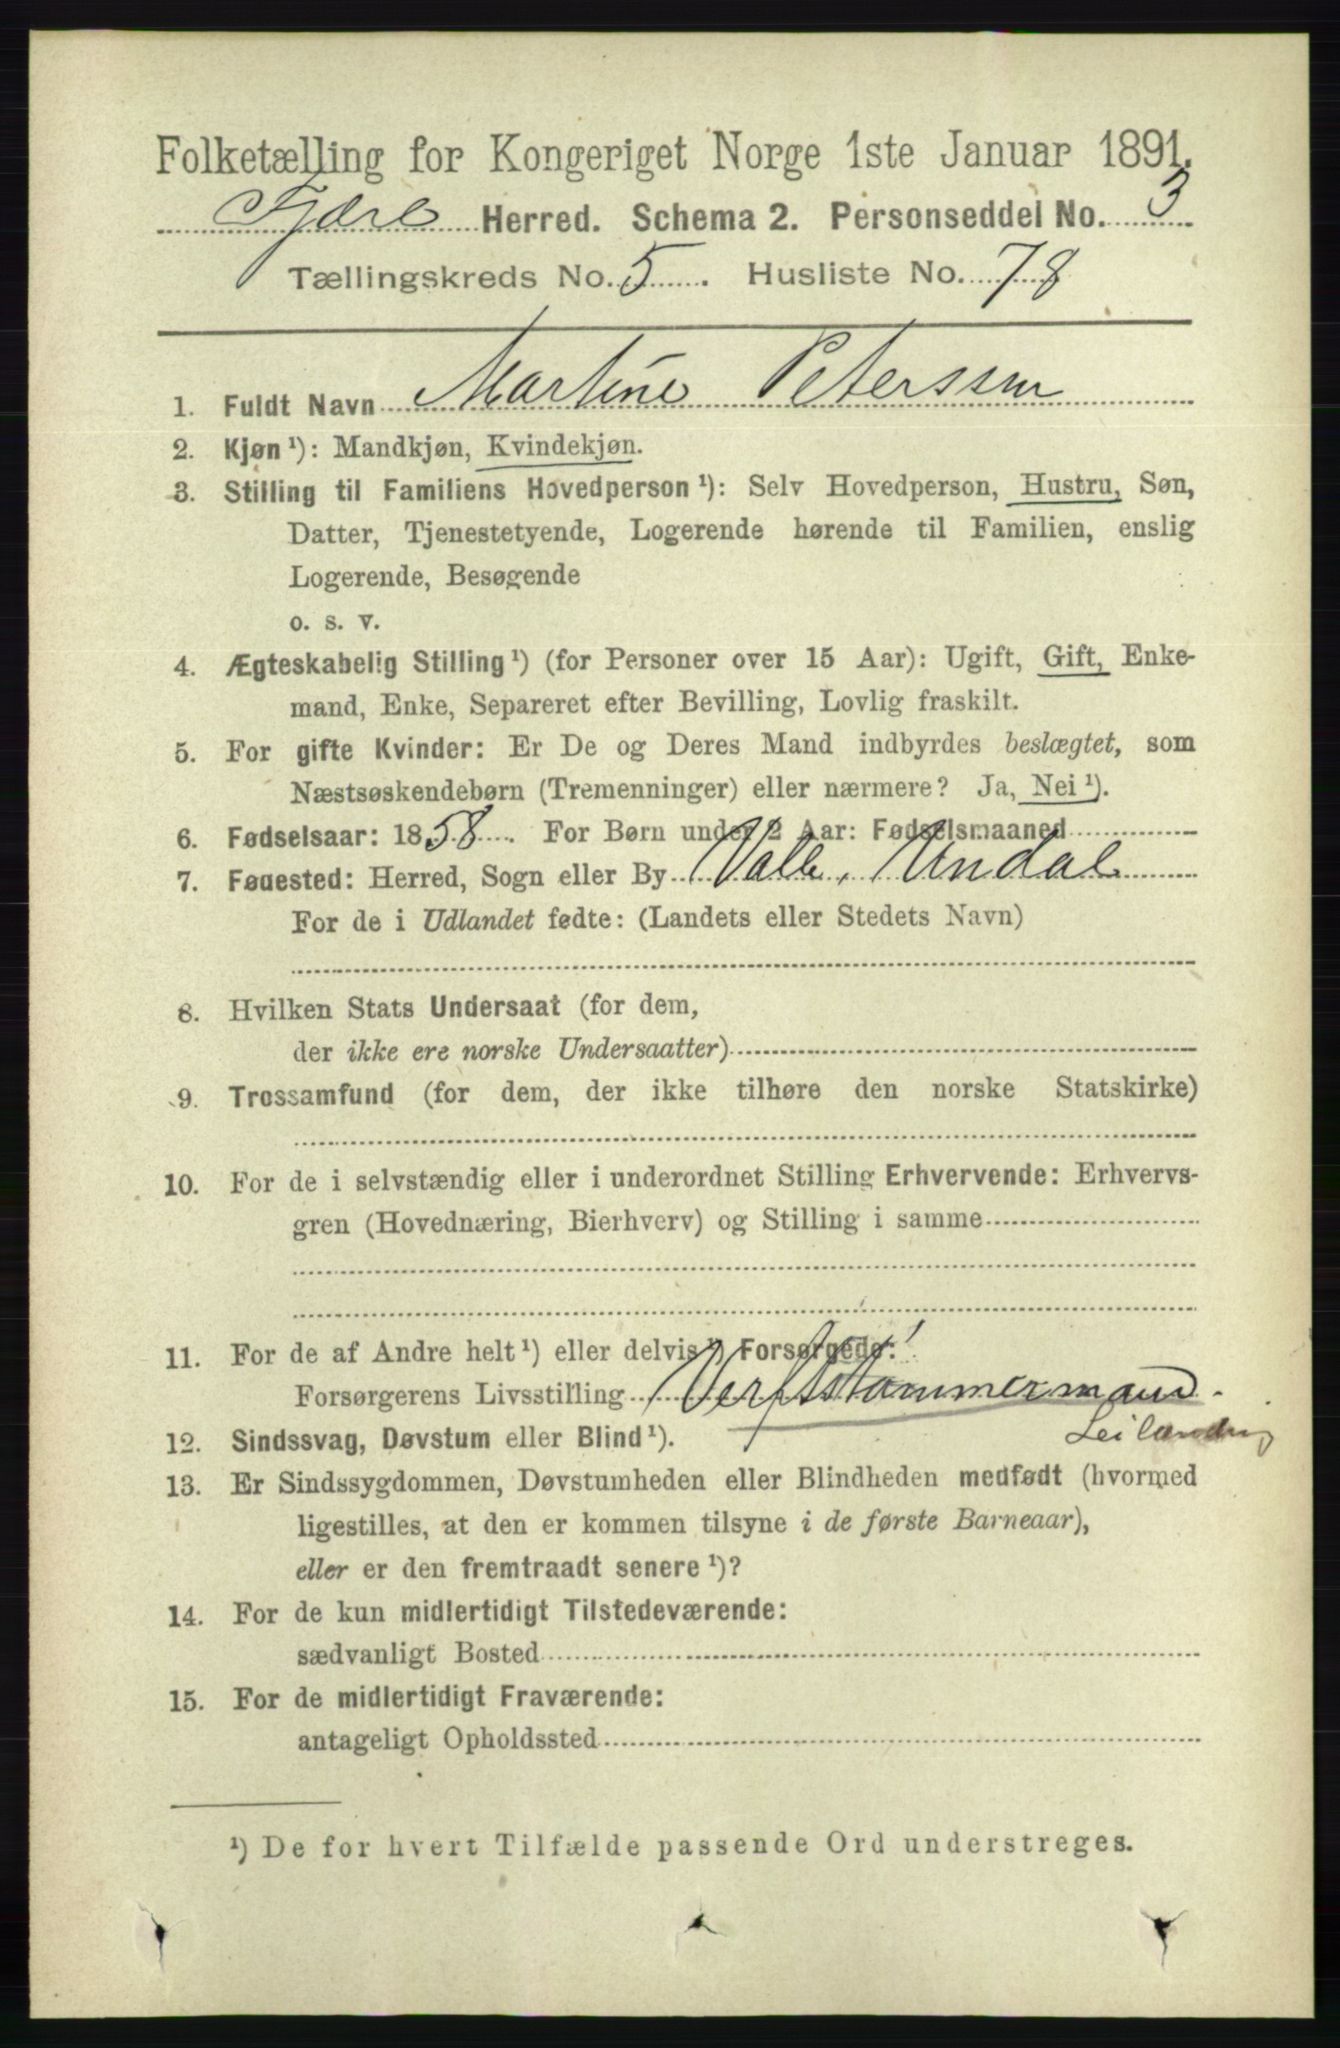 Folketælling for Kongeriget Norge 1ste Januar 1891.
Fjære Herred. Schema 2. Personseddel No. 3
Tællingskreds No. 5. Husliste No. 78
1. Fuldt Navn Martine Peterssen
2. Kjøn ¹): Mandkjøn, Kvindekjøn.
3. Stilling til Familiens Hovedperson ¹): Selv Hovedperson, Hustru, Søn,
Datter, Tjenestetyende, Logerende hørende til Familien, enslig
Logerende, Besøgende
o. s. v.
4. Ægteskabelig Stilling ¹) (for Personer over 15 Aar): Ugift, Gift, Enke-
mand, Enke, Separeret efter Bevilling, Lovlig fraskilt.
5. For gifte Kvinder: Er De og Deres Mand indbyrdes beslægtet, som
Næstsøskendebørn (Tremenninger) eller nærmere? Ja, Nei ¹).
6. Fødselsaar: 1858. For Børn under 2 Aar: Fødselsmaaned
7. Fødested: Herred, Sogn eller By Valle, Undal
For de i Udlandet fødte: (Landets eller Stedets Navn)
8. Hvilken Stats Undersaat (for dem,
der ikke ere norske Undersaatter)
9. Trossamfund (for dem, der ikke tilhøre den norske Statskirke)
10. For de i selvstændig eller i underordnet Stilling Erhvervende: Erhvervs-
gren (Hovednæring, Bierhverv) og Stilling i samme
11. For de af Andre helt ¹) eller delvis ¹) Forsørgede:
Forsørgerens Livsstilling Verftstømmermand.
Leilænding
12. Sindssvag, Døvstum eller Blind ¹).
13. Er Sindssygdommen, Døvstumheden eller Blindheden medfødt (hvormed
ligestilles, at den er kommen tilsyne i de første Barneaar),
eller er den fremtraadt senere ¹)?
14. For de kun midlertidigt Tilstedeværende:
sædvanligt Bosted
15. For de midlertidigt Fraværende:
antageligt Opholdssted
¹) De for hvert Tilfælde passende Ord understreges.